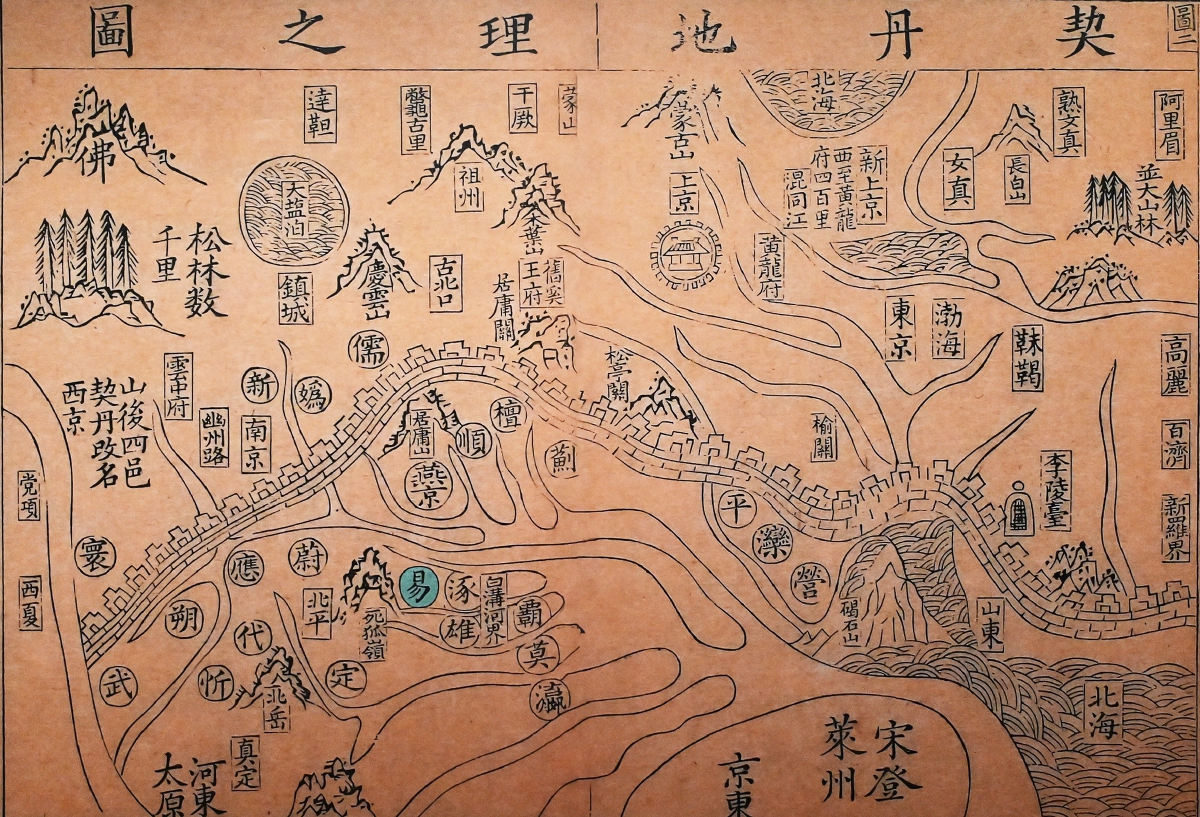 圖二
契丹地理之圖
阿里眉
熟女真
長白山
女真
並大山林
北海
新上京
西至黃龍
府四百里
混同江
蒙古山
上京
黃龍府
蒙山
于厥
鼈古里
達靼
佛山
祖州
木葉山
大盐泊
松林数
千里
慶雲山
古北口
鎮城
舊奚
王府
居庸關
東京
渤海
靺鞨
高麗
百濟
新羅界
松亭關
榆關
李陵臺
儒
新
媯
雲中府
幽州路
南京
山後四邑
契丹改名
西京
党項
西夏
居庸山
順
檀
薊
燕京
平
灤
營
碣石山
山東
北海
寰
應
蔚
朔
代
武
忻
北平
死狐嶺
易
涿
白溝河界
雄
霸
莫
定
瀛
北岳
真定
河東
太原
京東
宋登
萊州